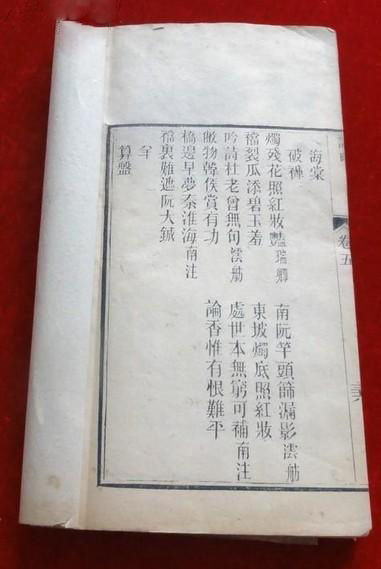 卷五
海棠
破褲
燭殘花照紅妝豔瑞卿　南阮竿頭篩漏影澐舫
襠裂瓜添碧玉羞　東坡燭底照紅妝
吟詩杜老曾無句澐舫　處世本無窮可補南注
敝物韓侯賞有功　論香惟有恨難平
橋邊早夢秦淮海南注
襠裏難遮阮大鋮
算盤